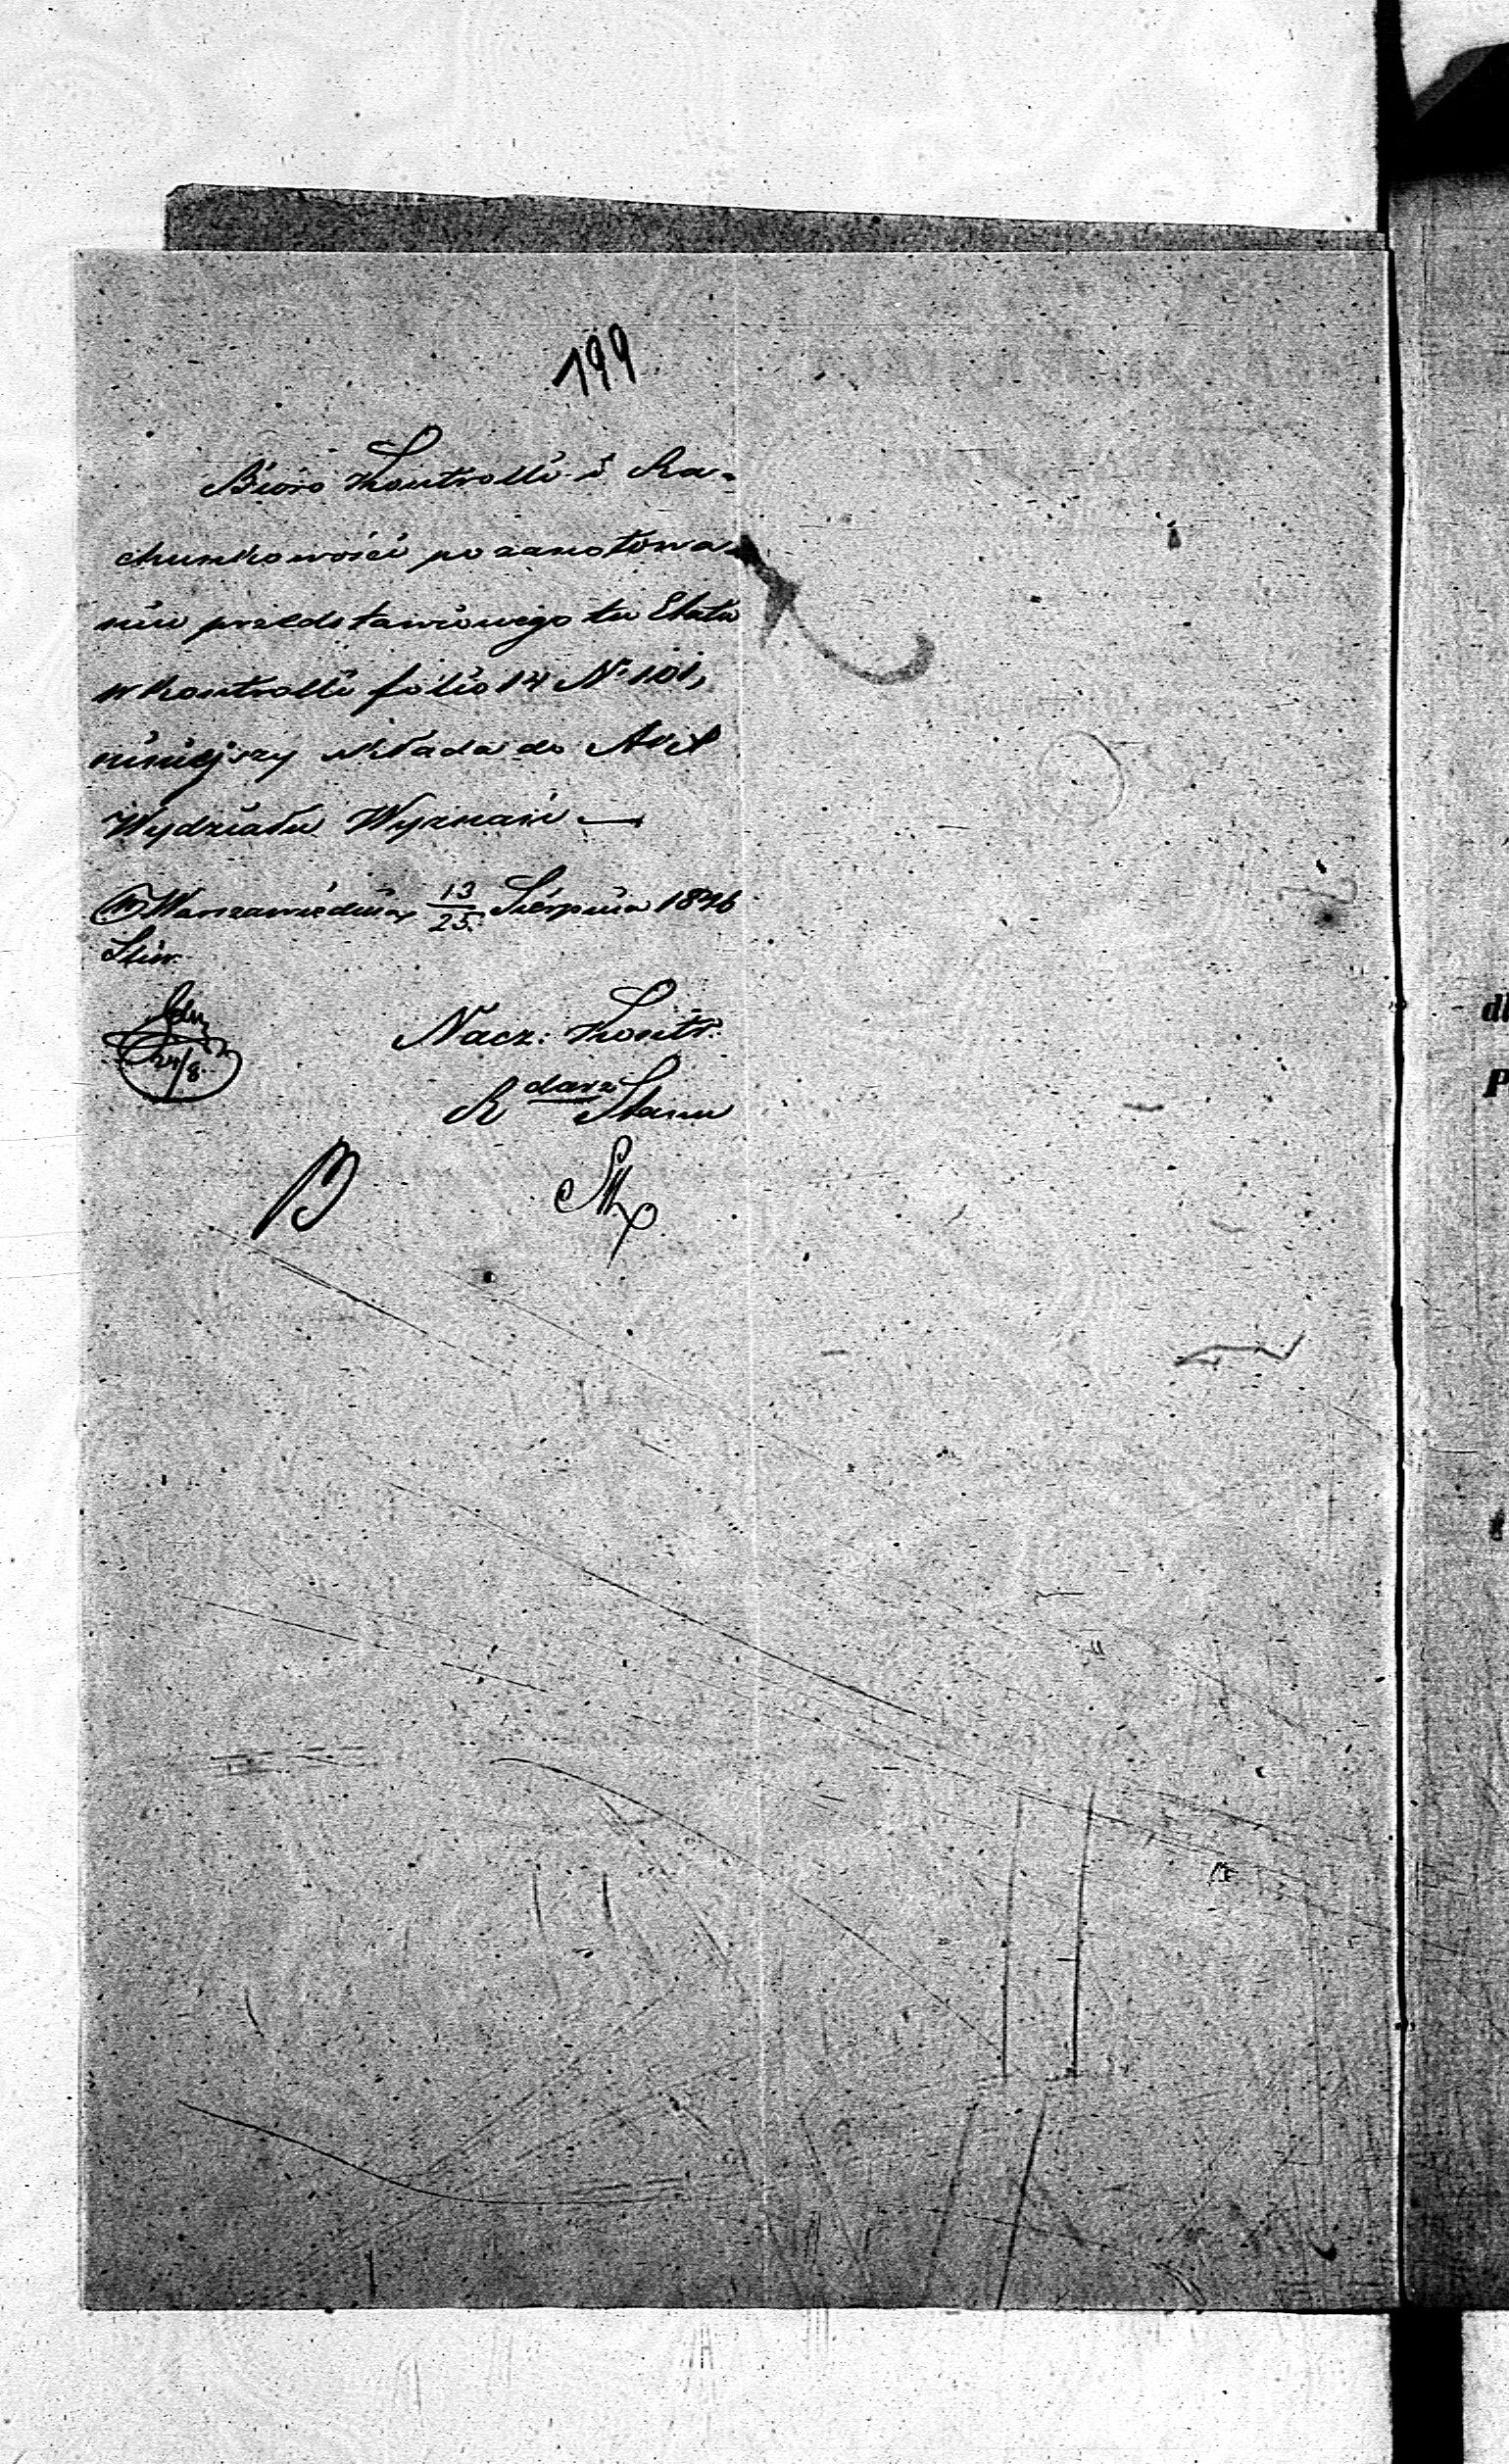 199
Biuro Kontrolli i Ra-
chunkowości po zanotowa-
niu przedstawionego tu Etatu
w Kontrolli folio 14 N° 101,
niniejszy składa do Akt
Wydziału Wyznań —
w Warszawie dnia 13/25 Sierpnia 1846
Nacz: Kontr:
R darz Stanu
24/8